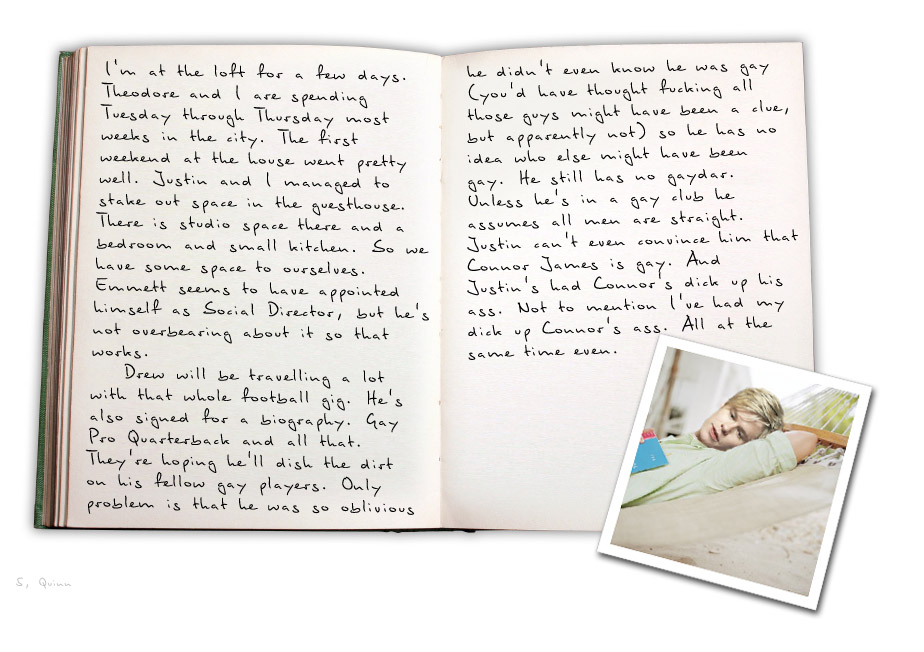 I'm at the loft for a few days.
Theodore and I are spending
Tuesday through Thursday most
weeks in the city. The first
weekend at the house went pretty
well. Justin and I managed to
stake out space in the guesthouse.
There is studio space there and a
bedroom and small kitchen. So we
have some space to ourselves.
Emmett seems to have appointed
himself as Social Director, but he's
not overbearing about it so that
works.
Drew will be travelling a lot
with that whole football gig. He's
also signed for a biography. Gay
Pro Quarterback and all that.
They're hoping he'll dish the dirt
on his fellow gay players. Only
problem is that he was so oblivious
he didn't even know he was gay
(you'd have thought fucking all
those guys might have been a clue,
but apparently not) so he has no
idea who else might have been
gay. He still has no gaydar.
Unless he's in a gay club he
assumes all men are straight.
Justin can't even convince him that
Connor James is gay. And
Justin's had Connor's dick up his
ass. Not to mention I've had my
dick up Connor's ass. All at the
same time even.
S, Quinn